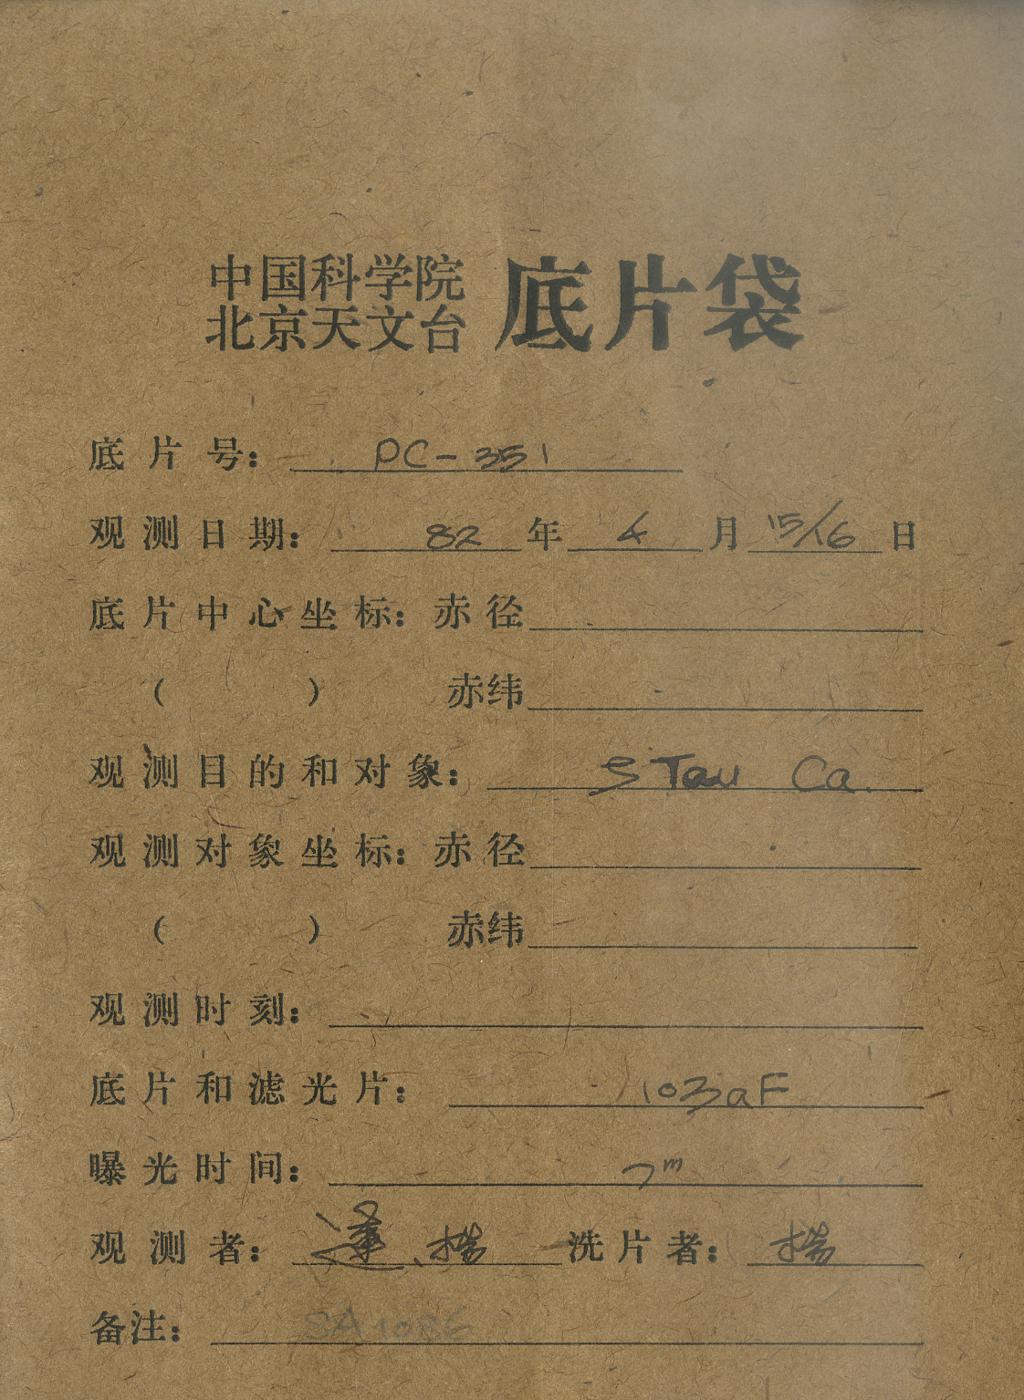 中国科学院
北京天文台 底片袋
底片号: PC-351
观测日期: 82年 4月 15/16日
底片中心坐标: 赤径
( ) 赤纬
观测目的和对象: Tau Ca
观测对象坐标: 赤径
( ) 赤纬
观测时刻:
底片和滤光片: 103aF
曝光时间: 7m
观测者: 洗片者:
备注: SA1086